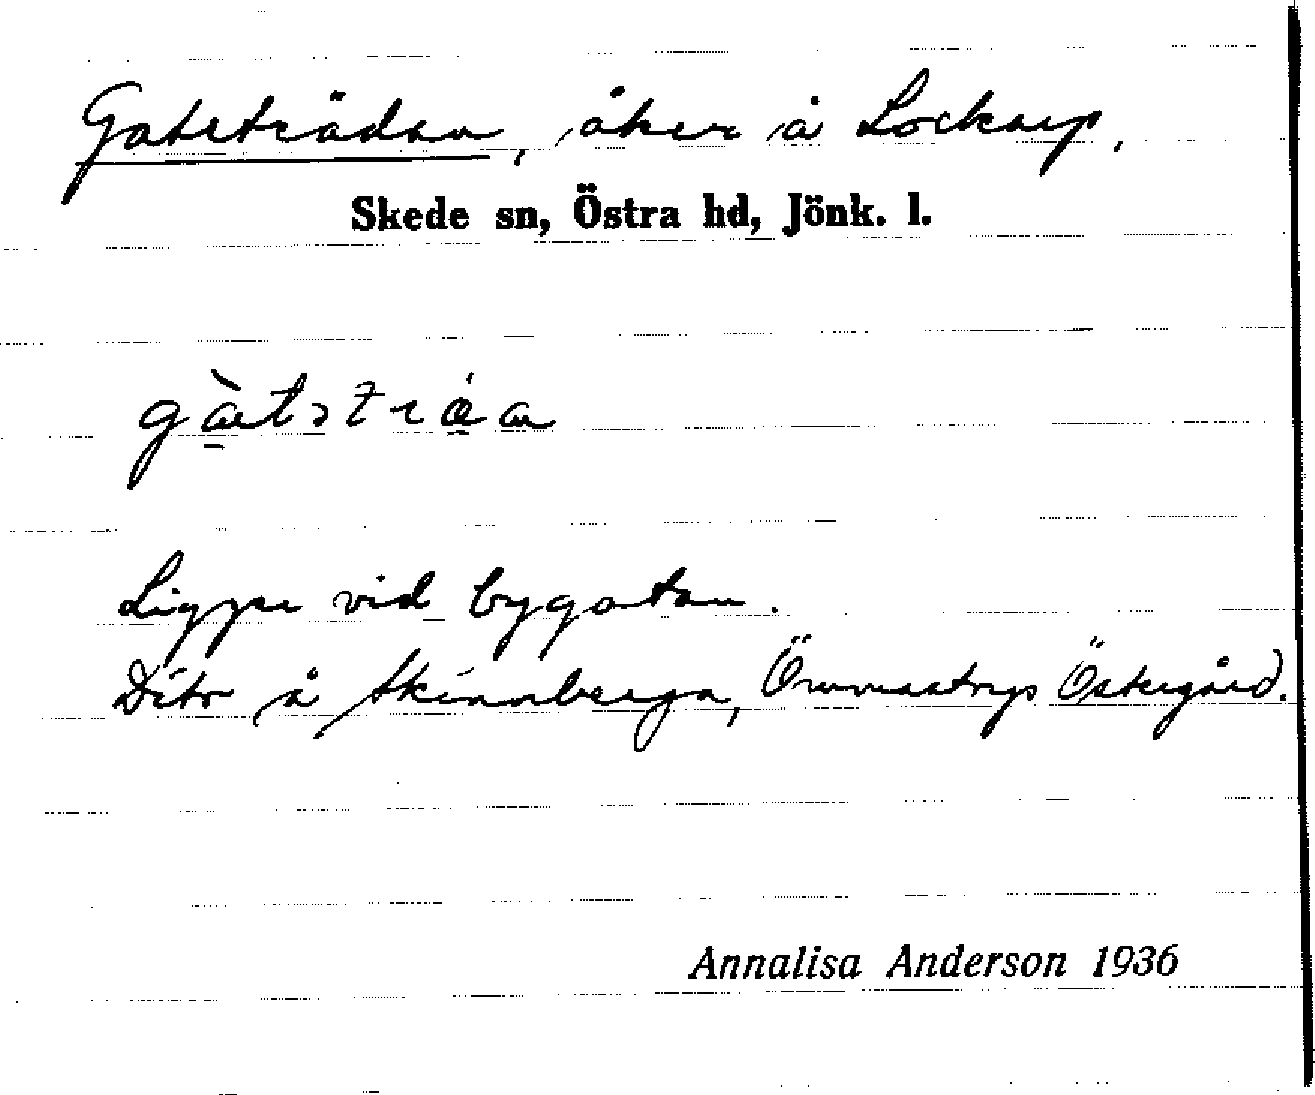 Gateträdan, åker å Lockarp,
Skede sn, Östra hd, Jönk. l.
Ligger vid bygatan.
Dito å Skinnberga, Östergård.
Annalisa Anderson 1936